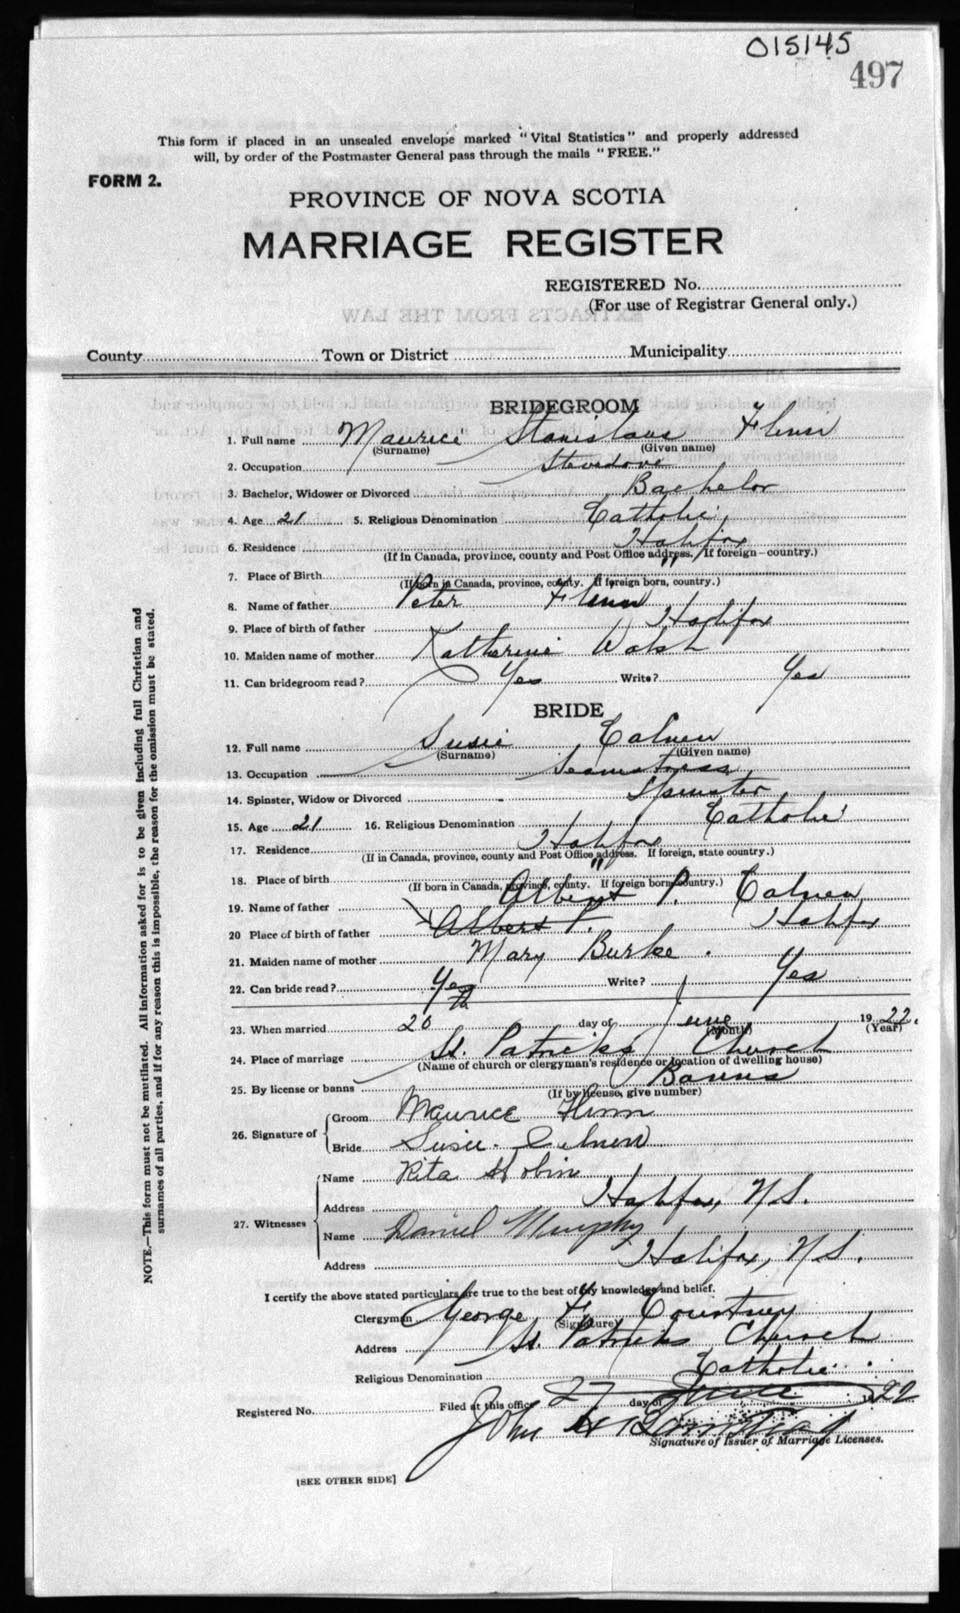 015145
497
This form if placed in an unsealed envelope marked "Vital Statistics" and properly addressed
will, by order of the Postmaster General pass through the mails "FREE."
FORM 2.
PROVINCE OF NOVA SCOTIA
MARRIAGE REGISTER
REGISTERED No.
(For use of Registrar General only.)
EXTRACTS FROM THE LAW
County Town or District Municipality
BRIDEGROOM
1. Full name Maurice Stanislaus Flinn
(Surname) (Given name)
2. Occupation Stevedore
3. Bachelor, Widower or Divorced Bachelor
4. Age 21 5. Religious Denomination Catholic
6. Residence Halifax
(If in Canada, province, county and Post Office address. If foreign—country.)
7. Place of Birth " "
(If born in Canada, province, county. If foreign born, country.)
8. Name of father Peter Flinn
9. Place of birth of father Halifax
10. Maiden name of mother Katherine Walsh
11. Can bridegroom read? Yes Write? Yes
BRIDE
12. Full name Susie Calnen
(Surname) (Given name)
13. Occupation Seamstress
14. Spinster, Widow or Divorced Spinster
15. Age 21 16. Religious Denomination Catholic
17. Residence Halifax
(If in Canada, province, county and Post Office address. If foreign, state country.)
18. Place of birth "
(If born in Canada, province, county. If foreign born country.)
19. Name of father Albert P. Calnen
20 Place of birth of father Albert P. Halifax
21. Maiden name of mother Mary Burke.
22. Can bride read? Yes Write? Yes
23. When married 20th day of June 1922.
(Month) (Year)
24. Place of marriage St. Patricks Church
(Name of church or clergyman's residence or location of dwelling house)
25. By license or banns Banns
(If by license, give number)
26. Signature of Groom Maurice Flinn
Bride Susie Calnen
27. Witnesses Name Rita Hobin
Address Halifax, N.S.
Name Daniel Murphy
Address Halifax, N.S.
I certify the above stated particulars are true to the best of my knowledge and belief.
Clergyman George F. Courtney
(Signature)
Address St. Patricks Church
Religious Denomination Catholic
Registered No. Filed at this office 27 day of June 22
John H
Signature of Issuer of Marriage Licenses.
[SEE OTHER SIDE]
NOTE.—This form must not be mutilated. All information asked for is to be given including full Christian and
surnames of all parties, and if for any reason this is impossible, the reason for the omission must be stated.